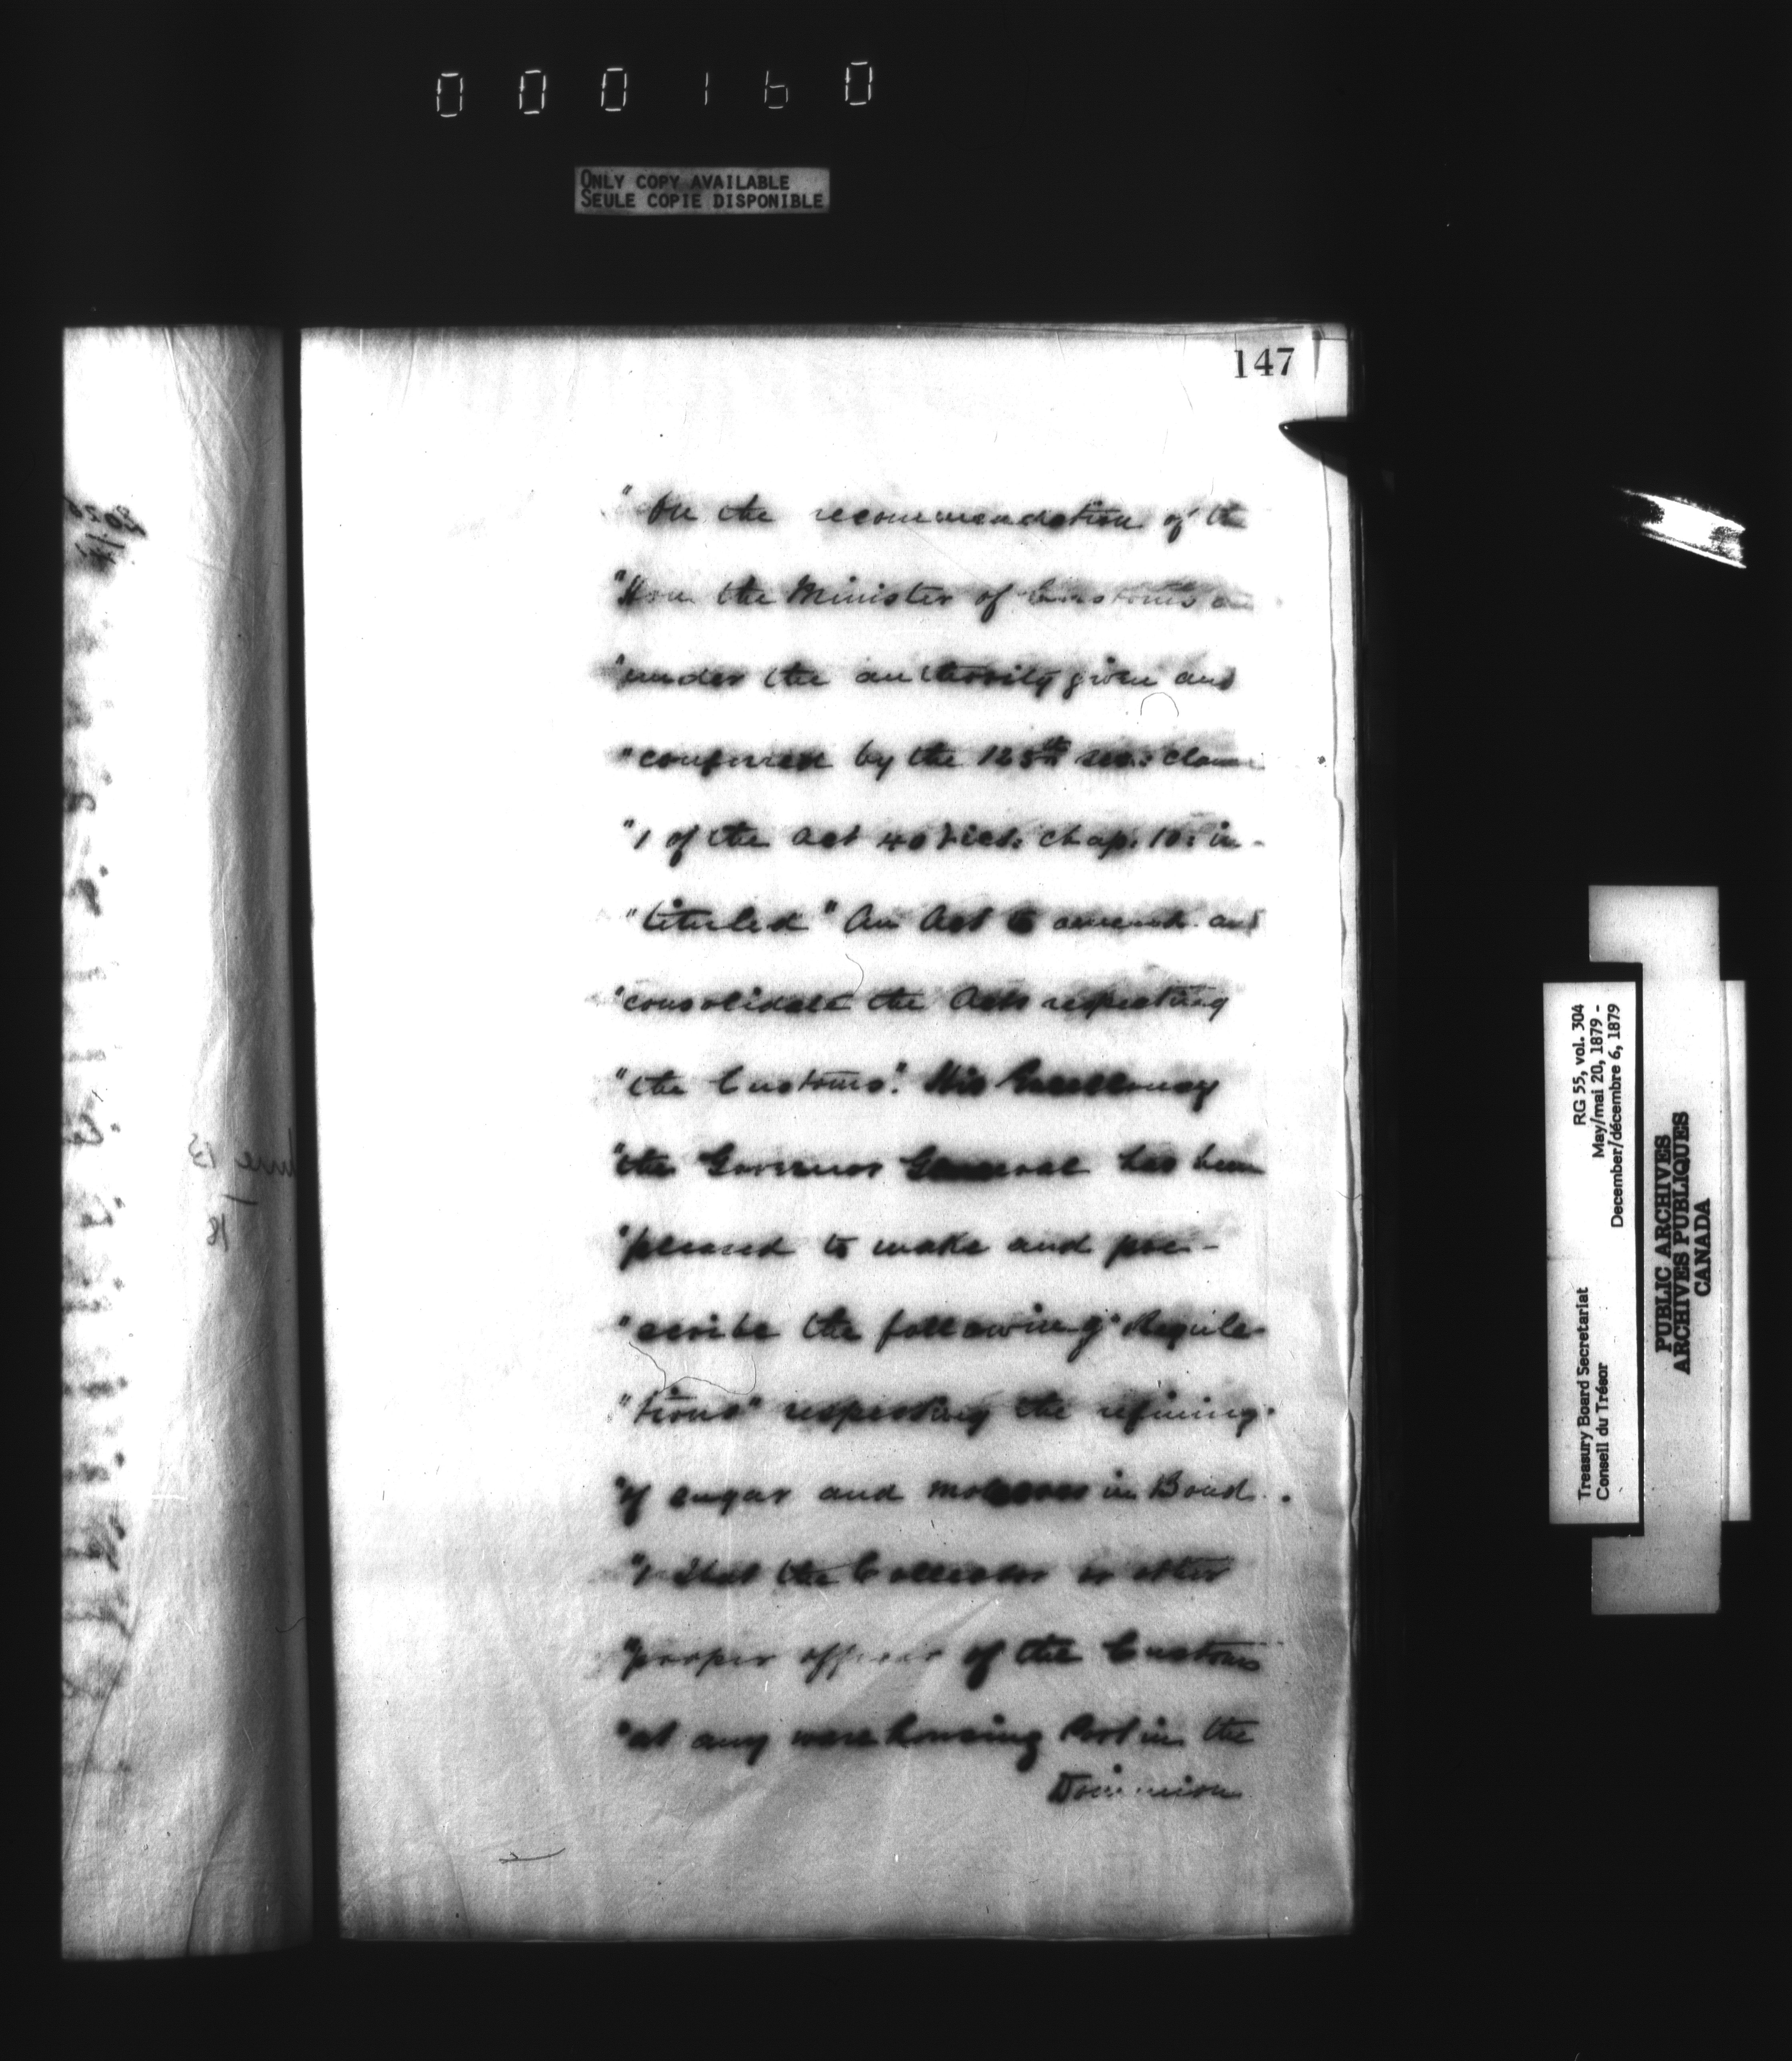 000160
ONLY COPY AVAILABLE
SEULE COPIE DISPONIBLE
147
"On the recommendation of the
"Hon the Minister of Customs and
"under the authority given and
"conferred by the 125th sec: clause
"1 of the Act 40 Vict. chap. 10: in-
"tituled "An Act to amend and
"consolidate the Acts respecting
"the Customs". His Excellency
"the Governor General has been
"pleased to make and pre-
"scribe the following "Regula-
"tions" respecting the refining
"of sugar and molasses in Bond.
"1 That the Collector or other
"proper officer of the Customs
"at any warehousing Port in the
Dominion
Treasury Board Secretariat RG 55, vol. 304
Conseil du Trésor May/mai 20, 1879 -
December/décembre 6, 1879
PUBLIC ARCHIVES
ARCHIVES PUBLIQUES
CANADA